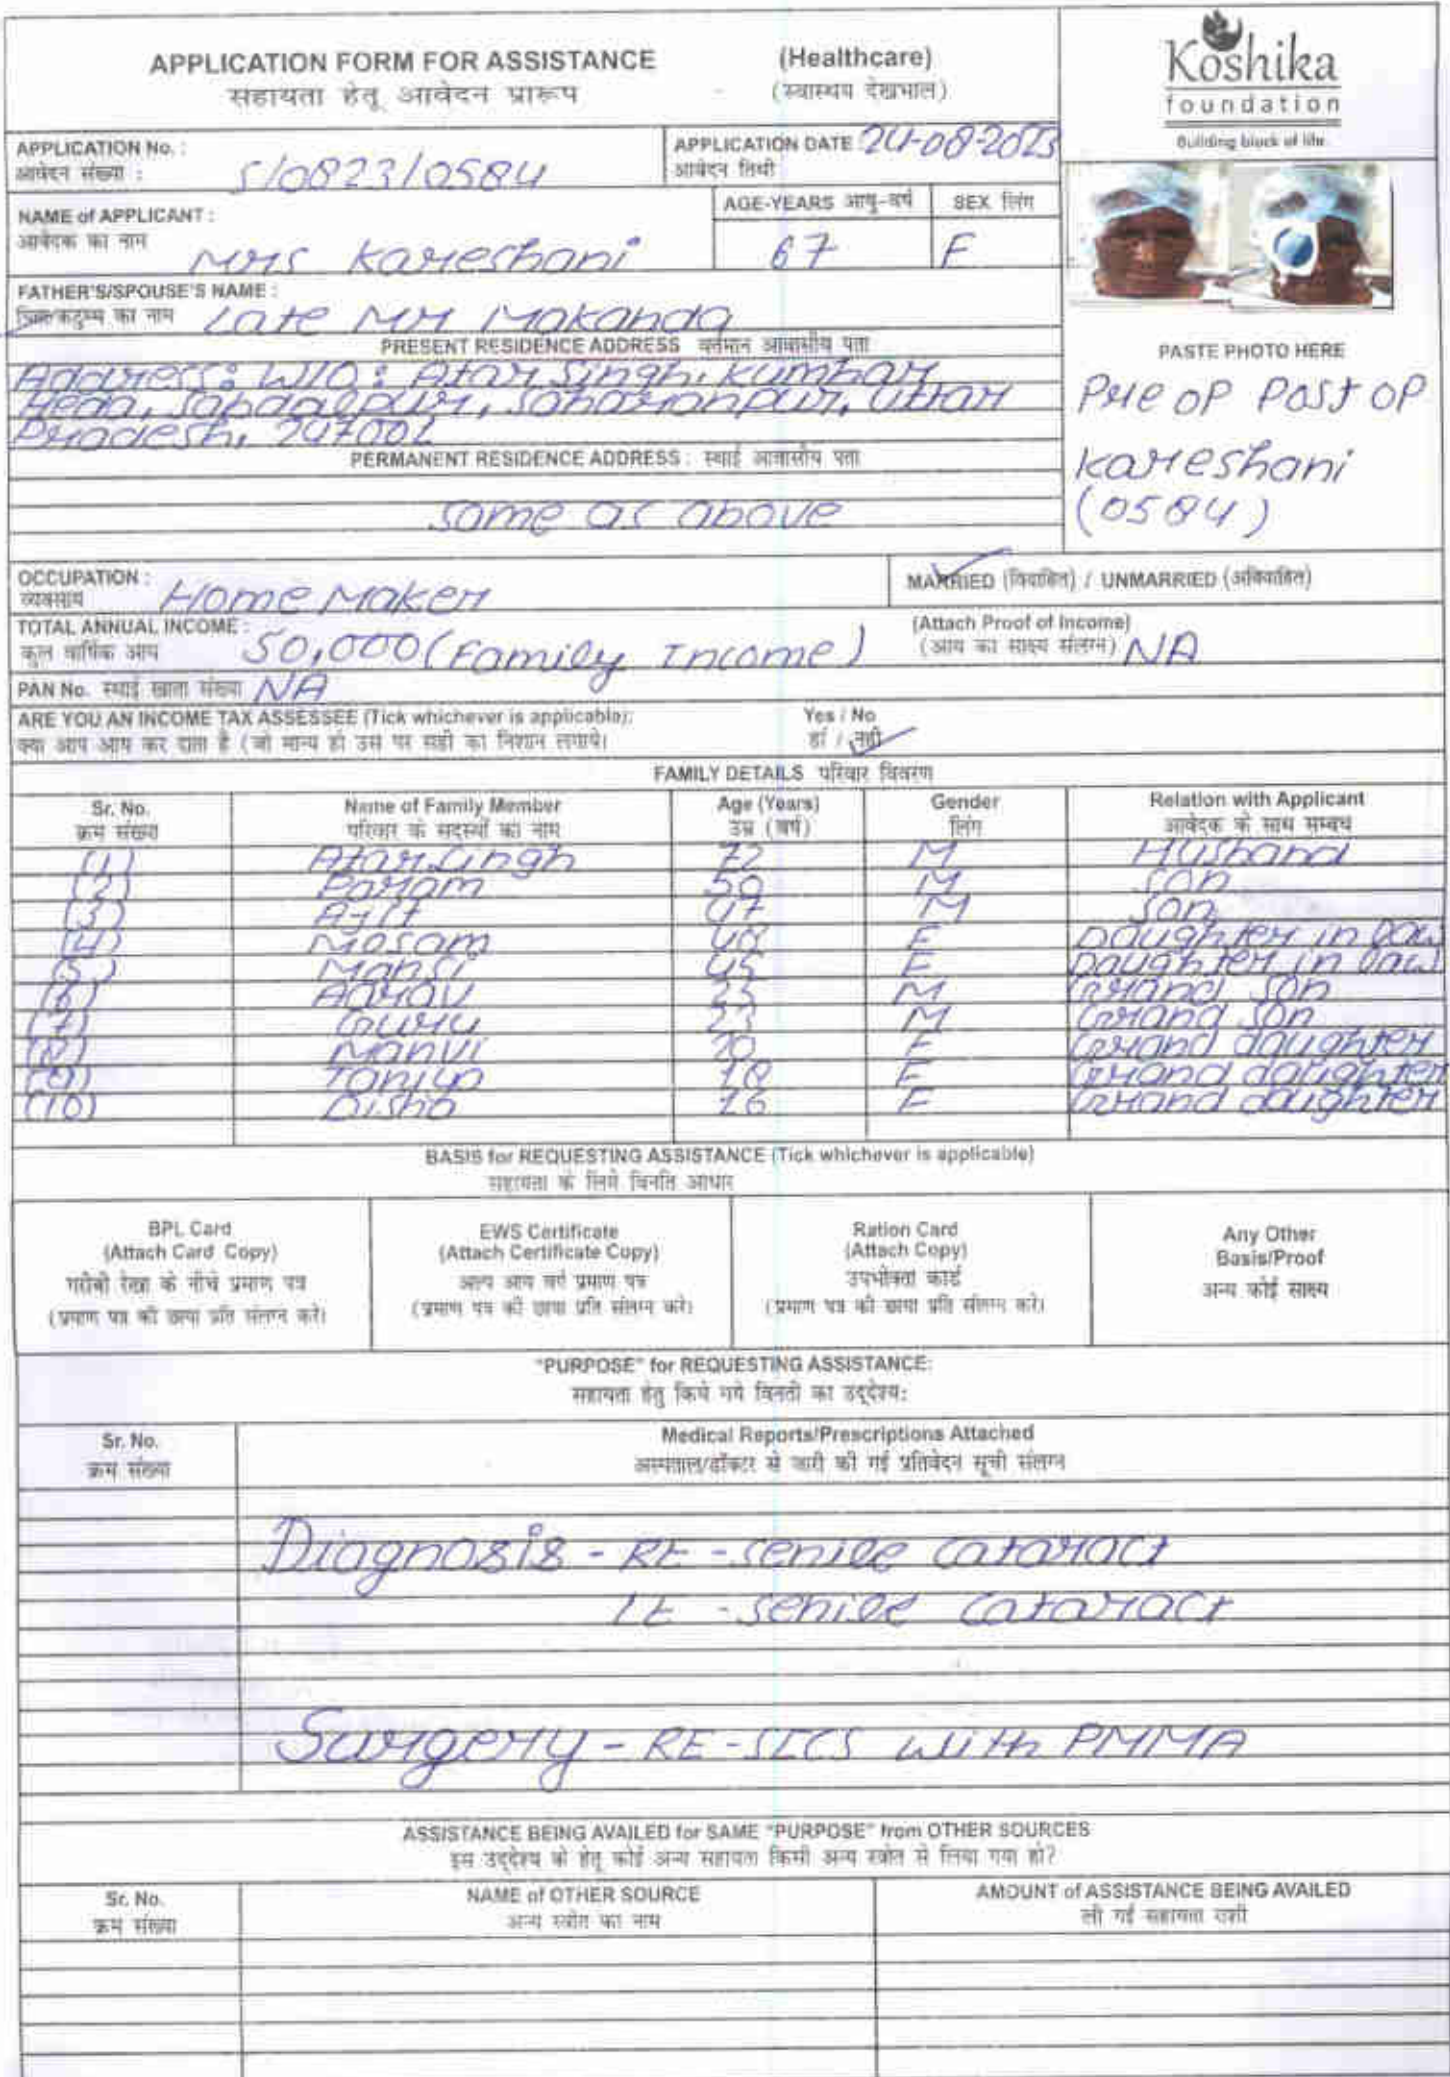 APPLICATION FORM FOR ASSISTANCE (Healthcare)
सहायता हेतू आवेदन प्रारूप (स्वास्थय देखभाल)
Koshika
foundation
Building block of life
APPLICATION No. : S/0823/0584
आवेदन संख्या :
APPLICATION DATE 24-08-2023
आवेदन तिथी
NAME of APPLICANT :
आवेदक का नाम Mrs Kareshani
AGE-YEARS आयु-वर्ष 67
SEX लिंग F
FATHER'S/SPOUSE'S NAME :
पिता/कटुम्ब का नाम Late Mr Makanda
PRESENT RESIDENCE ADDRESS वर्तमान आवासीय पता
Address: W/O: Atar Singh, Kumhar
Heda, Sabdalpur, Saharanpur, Uttar
Pradesh, 247002
PERMANENT RESIDENCE ADDRESS : स्थाई आवासीय पता
Same as above
PASTE PHOTO HERE
Pre OP Post OP
Kareshani
(0584)
OCCUPATION :
व्यवसाय Home Maker
MARRIED (विवाहित) / UNMARRIED (अविवाहित)
TOTAL ANNUAL INCOME :
कुल वार्षिक आय 50,000 (Family Income)
(Attach Proof of Income)
(आय का साक्ष्य संलग्न) NA
PAN No. स्थाई खाता संख्या NA
ARE YOU AN INCOME TAX ASSESSEE (Tick whichever is applicable): Yes / No
क्या आप आय कर दाता है (जो मान्य हो उस पर सही का निशान लगाये) हां / नहीं
FAMILY DETAILS परिवार विवरण
Sr. No. Name of Family Member Age (Years) Gender Relation with Applicant
क्रम संख्या परिवार के सदस्यों का नाम उम्र (वर्ष) लिंग आवेदक के साथ सम्बध
(1) Atar Singh 72 M Husband
(2) Param 50 M Son
(3) Ajit 47 M Son
(4) Mosam 48 F Daughter in law
(5) Mansi 45 F Daughter in law
(6) Aarav 25 M Grand Son
(7) Guru 23 M Grand Son
(8) Manvi 20 F Grand daughter
(9) Taniya 18 F Grand daughter
(10) Disha 16 F Grand daughter
BASIS for REQUESTING ASSISTANCE (Tick whichever is applicable)
सहायता के लिये विनति आधार
BPL Card EWS Certificate Ration Card Any Other
(Attach Card Copy) (Attach Certificate Copy) (Attach Copy) Basis/Proof
गरीबी रेखा के नीचे प्रमाण पत्र अल्प आय वर्ग प्रमाण पत्र उपभोक्ता कार्ड अन्य कोई साक्ष्य
(प्रमाण पत्र की छाया प्रति संलग्न करे) (प्रमाण पत्र की छाया प्रति संलग्न करे) (प्रमाण पत्र की छाया प्रति संलग्न करे)
"PURPOSE" for REQUESTING ASSISTANCE:
सहायता हेतु किये गये विनती का उद्देश्य:
Sr. No. Medical Reports/Prescriptions Attached
क्रम संख्या अस्पताल/डॉक्टर से जारी की गई प्रतिवेदन सूची संलग्न
Diagnosis - RE - Senile Cataract
LE - Senile Cataract
Surgery - RE - SICS with PMMA
ASSISTANCE BEING AVAILED for SAME "PURPOSE" from OTHER SOURCES
इस उद्देश्य के हेतू कोई अन्य सहायता किसी अन्य स्त्रोत से लिया गया हो?
Sr. No. NAME of OTHER SOURCE AMOUNT of ASSISTANCE BEING AVAILED
क्रम संख्या अन्य स्त्रोत का नाम ली गई सहायता राशी